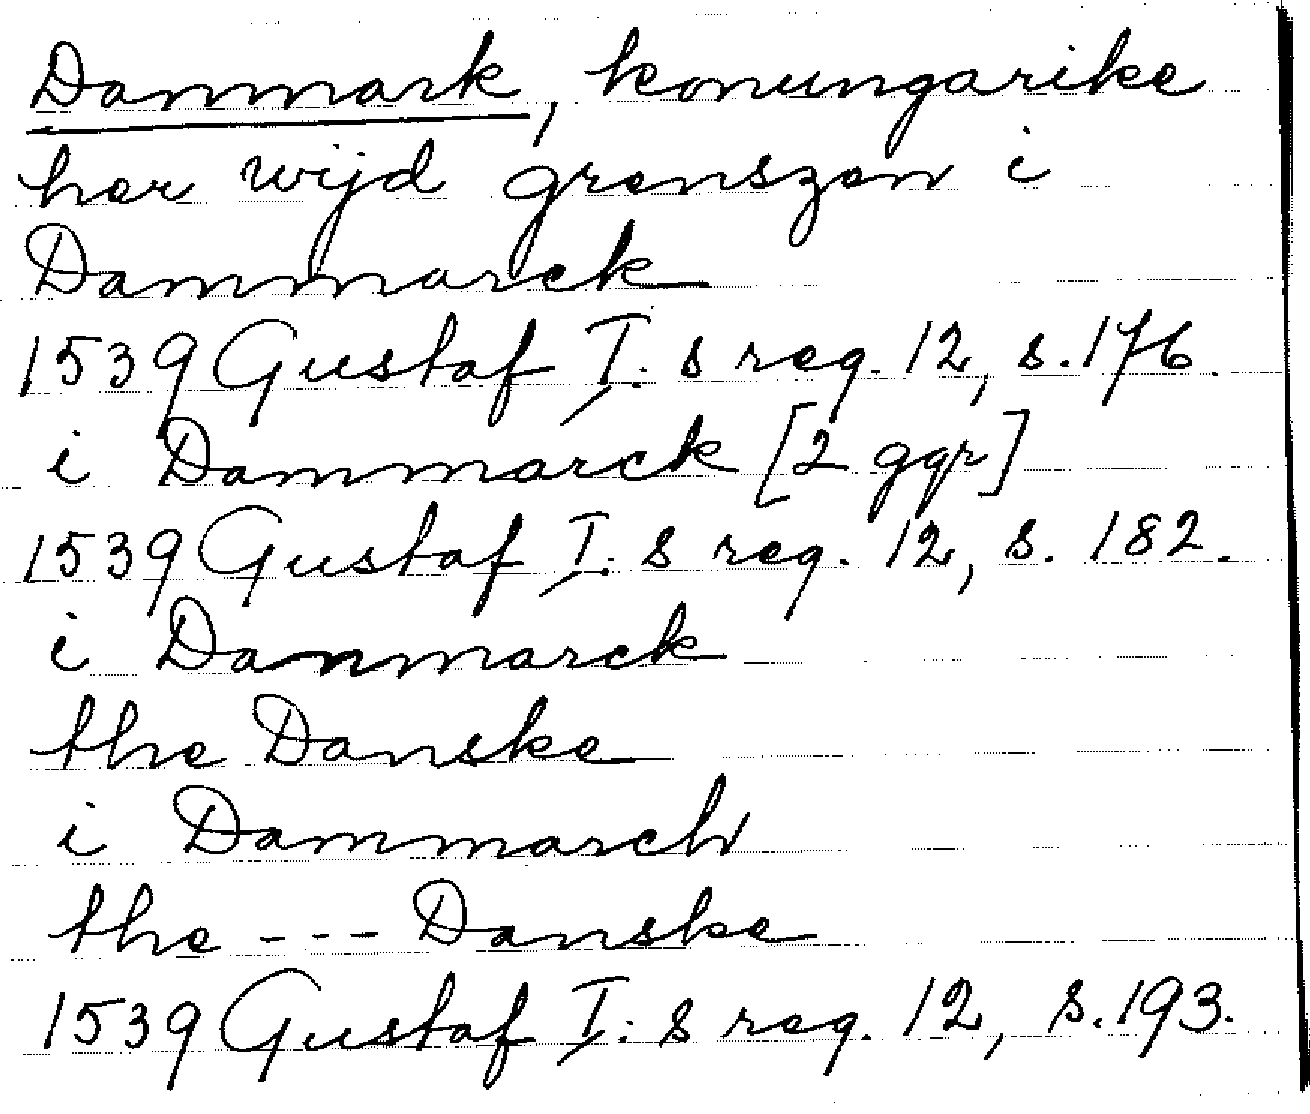 Danmark, konungarike
her wijd grenszen i
Danmarck
1539 Gustaf I:s reg. 12, s. 176.
i Danmarck [2 ggr]
1539 Gustaf I:s reg. 12, s. 182.
i Danmarck
the Danske
i Danmarch
the --- Danske
1539 Gustaf I:s reg. 12, s. 193.